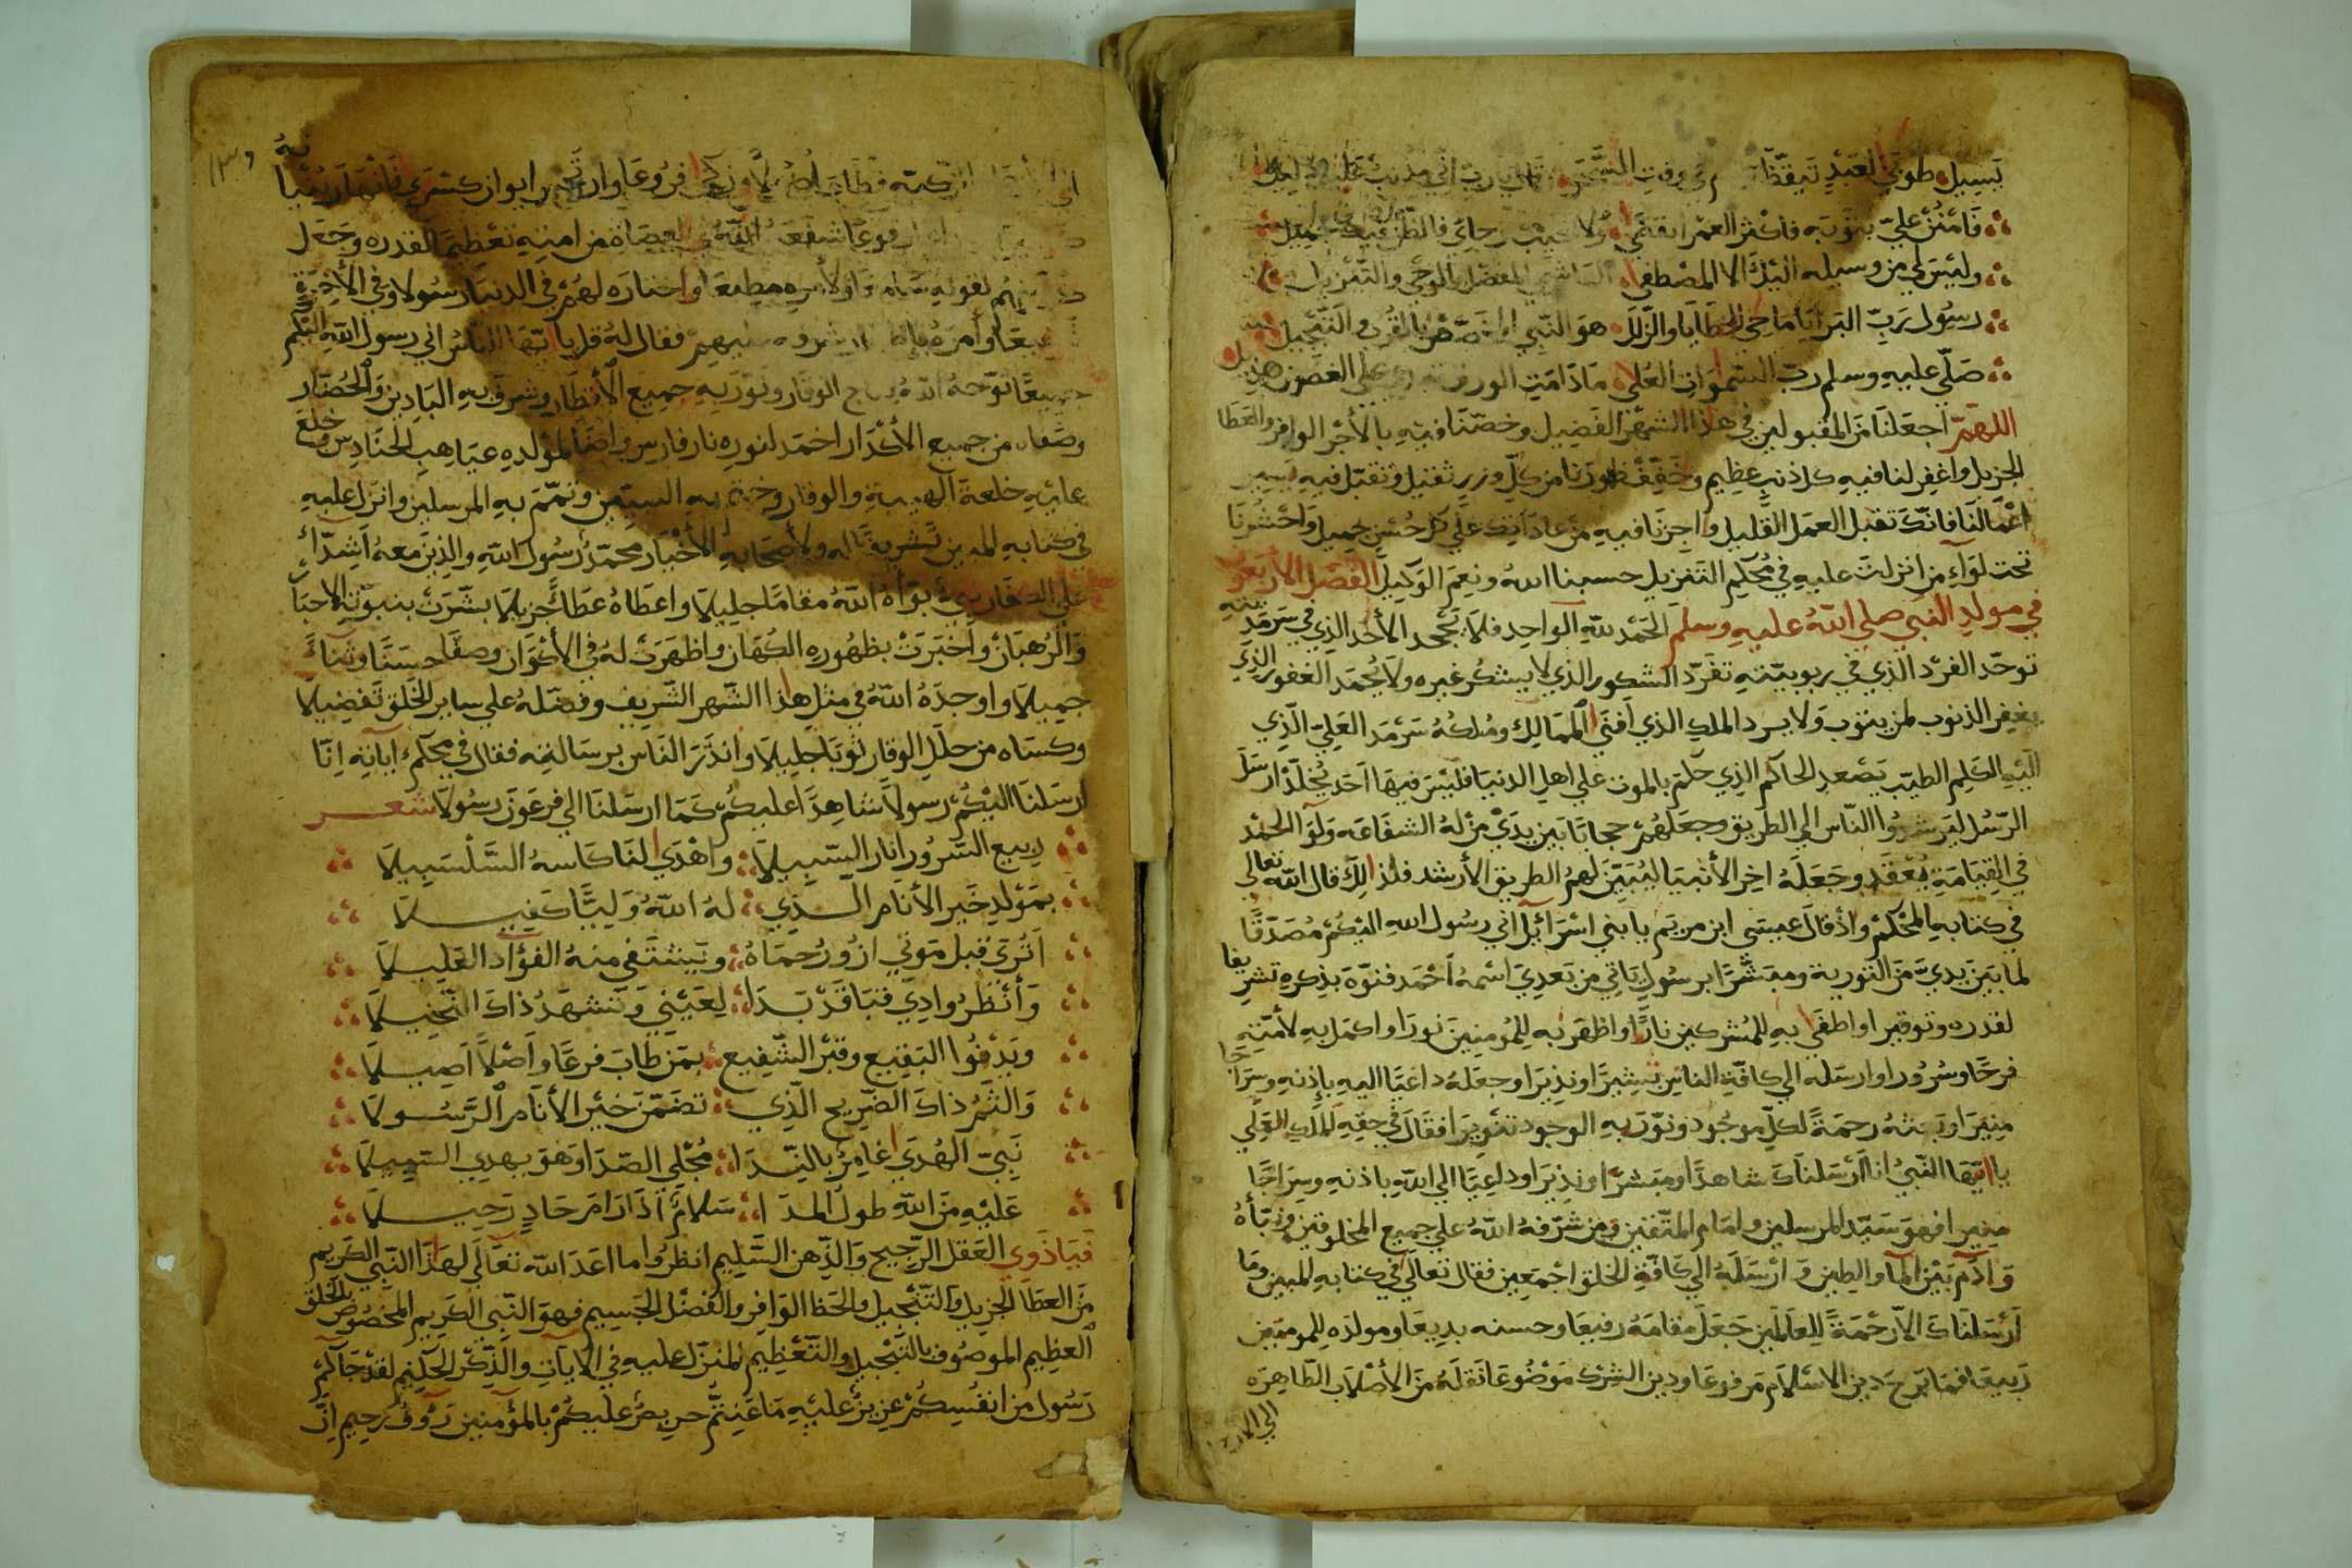 بسبيل طوبي لعبد تيقظ في وقت السحر قال يا رب اني مذنب
فامنن علي بتوبه فاكثر العمر انقضي ولا تخيب رجائي فالظن فيك جميل
وليس لي من وسيله اليك الا المصطفي الهاشمي المفضل بالوحي والتنزيل
رسول رب البرايا ماحي الخطايا والزلل هو النبي المخصص بالقرب والتبجيل
صلي عليه وسلم رب السموات العلي ما دامت الورق علي الغصون هديل
اللهم اجعلنا من المقبولين في هذا الشهر الفضيل وخصنا فيه بالأجر الوافر والعطا
الجزيل واغفر لنا فيه كل ذنب عظيم وخفف ظهورنا من كل وزر ثقيل وتقبل فيه يسير
اعمالنا فانك تقبل العمل القليل واجرنا فيه من عاداتك علي كل حسن جميل واحشرنا
تحت لواء من انزلت عليه في محكم التنزيل حسبنا الله ونعم الوكيل الفصل الأربعون
في مولد النبي صلي الله عليه وسلم الحمد لله الواحد فلا يجحد الأحد الذي في سرمديته
توحد الفرد الذي في ربوبيته تفرد الشكور الذي لا يشكر غيره ولا يحمد الغفور الذي
يغفر الذنوب لمن يتوب ولا يرد الملك الذي افني الممالك وملكه سرمد العلي الذي
اليه الكلم الطيب يصعد الحاكم الذي حكم بالموت علي اهل الدنيا فليس فيها احد يخلد ارسل
الرسل ليرشدوا الناس الي الطريق وجعلهم حجابا بين يدي من له الشفاعه ولوآ الحمد
في القيامة يعقد وجعله اخر الأنبيا ليبين لهم الطريق الأرشد فلذلك قال الله تعالي
في كتابه المحكم واذ قال عيسي ابن مريم يا بني اسرآئيل اني رسول الله اليكم مصدقا
لما بين يدي من التورية ومبشرا برسول ياتي من بعدي اسمه احمد فنوه بذكره تشريفا
لقدره وتوقيرا واطفي به للمشركين نارا واظهر به للمومنين نورا واكمل به لأمته
فرحا وسرورا وارسله الي كافة الناس بشيرا ونذيرا وجعله داعيا اليه بإذنه وسراجا
منيرا وبعثه رحمة لكل موجود ونور به الوجود تنويرا فقال في حقه الملك العلي
يا ايها النبي انا ارسلناك شاهدا ومبشرا ونذيرا وداعيا الي الله باذنه وسراجا
منيرا فهو سيد المرسلين وامام المتقين ومن شرفه الله علي جميع المخلوقين ونبأه
وآدم بين المآ والطين وارسله الي كافة الخلق اجمعين فقال تعالي في كتابه المبين وما
ارسلناك الا رحمة للعالمين جعل مقامه رفيعا وحسنه بديعا ومولده للمومنين
ربيعا فما برح دين الاسلام مرفوعا ودين الشرك موضوعا نقله من الأصلاب الطاهره
الي الار
١٣٠
الزكيه فطاب اصلا وزكي فروعا وارتج ايوان كسري
شفعه الله في العصاة من امته تعظيما لقدره وجعل
لقوله ولأمره مطيعا واختاره لهم في الدنيا رسولا وفي الآخرة
وامره فقال له قل يا ايها الناس اني رسول الله اليكم
جميعا توجه الله بتاج الوقار ونور به جميع الأقطار وشرف به البادين والحضار
وصفاه من جميع الأكدار اخمد لنوره نار فارس واضا لمولده غياهب الحنادس وخلع
عليه خلعة الهيبة والوقار وختم به النبيين وتمم به المرسلين وانزل عليه
في كتابه المبين تشريفا له ولأصحابه الأخيار محمد رسول الله والذين معه اشداء
علي الكفار نبي بوأه الله مقاما جليلا واعطاه عطاء جزيلا بشرت بنبوته الاحبا
والرهبان واخبرت بظهوره الكهان واظهرت له في الأكوان وصفا حسنا وثناء
جميلا واوجده الله في مثل هذا الشهر الشريف وفضله علي ساير الخلق تفضيلا
وكساه من حلل الوقار ثوبا جليلا وانذر الناس برسالته فقال في محكم اياته انا
ارسلنا اليكم رسولا شاهدا عليكم كما ارسلنا الي فرعون رسولا شعر
ربيع السرور انار السبيلا واهدي لنا كاسه السلسبيلا
بمولد خير الأنام الذي له الله وليا كفيلا
اتري قبل موتي ازور حماه ويشتفي منه الفؤاد العليلا
وأنظر وادي قبا قد بدا لعيني وتشهد ذاك النخيلا
ويدنوا البقيع وقبر الشفيع بمن طاب فرعا واصلا اصيلا
والثم ذاك الضريح الذي تضمن خير الأنام الرسولا
نبي الهدي غامر بالندا مجلي الصدا وهو يهدي السبيلا
عليه من الله طول المدا سلام اذا رام حاد رحيلا
فيا ذوي العقل الرجيح والذهن السليم انظروا ما اعد الله تعالي لهذا النبي الكريم
من العطا الجزيل والتبجيل والحظ الوافر والفضل الجسيم فهو النبي الكريم المخصوص بالخلق
العظيم الموصوف بالتبجيل والتعظيم المنزل عليه في الآيات والذكر الحكيم لقد جآكم
رسول من انفسكم عزيز عليه ما عنتم حريص عليكم بالمؤمنين رؤوف رحيم ان